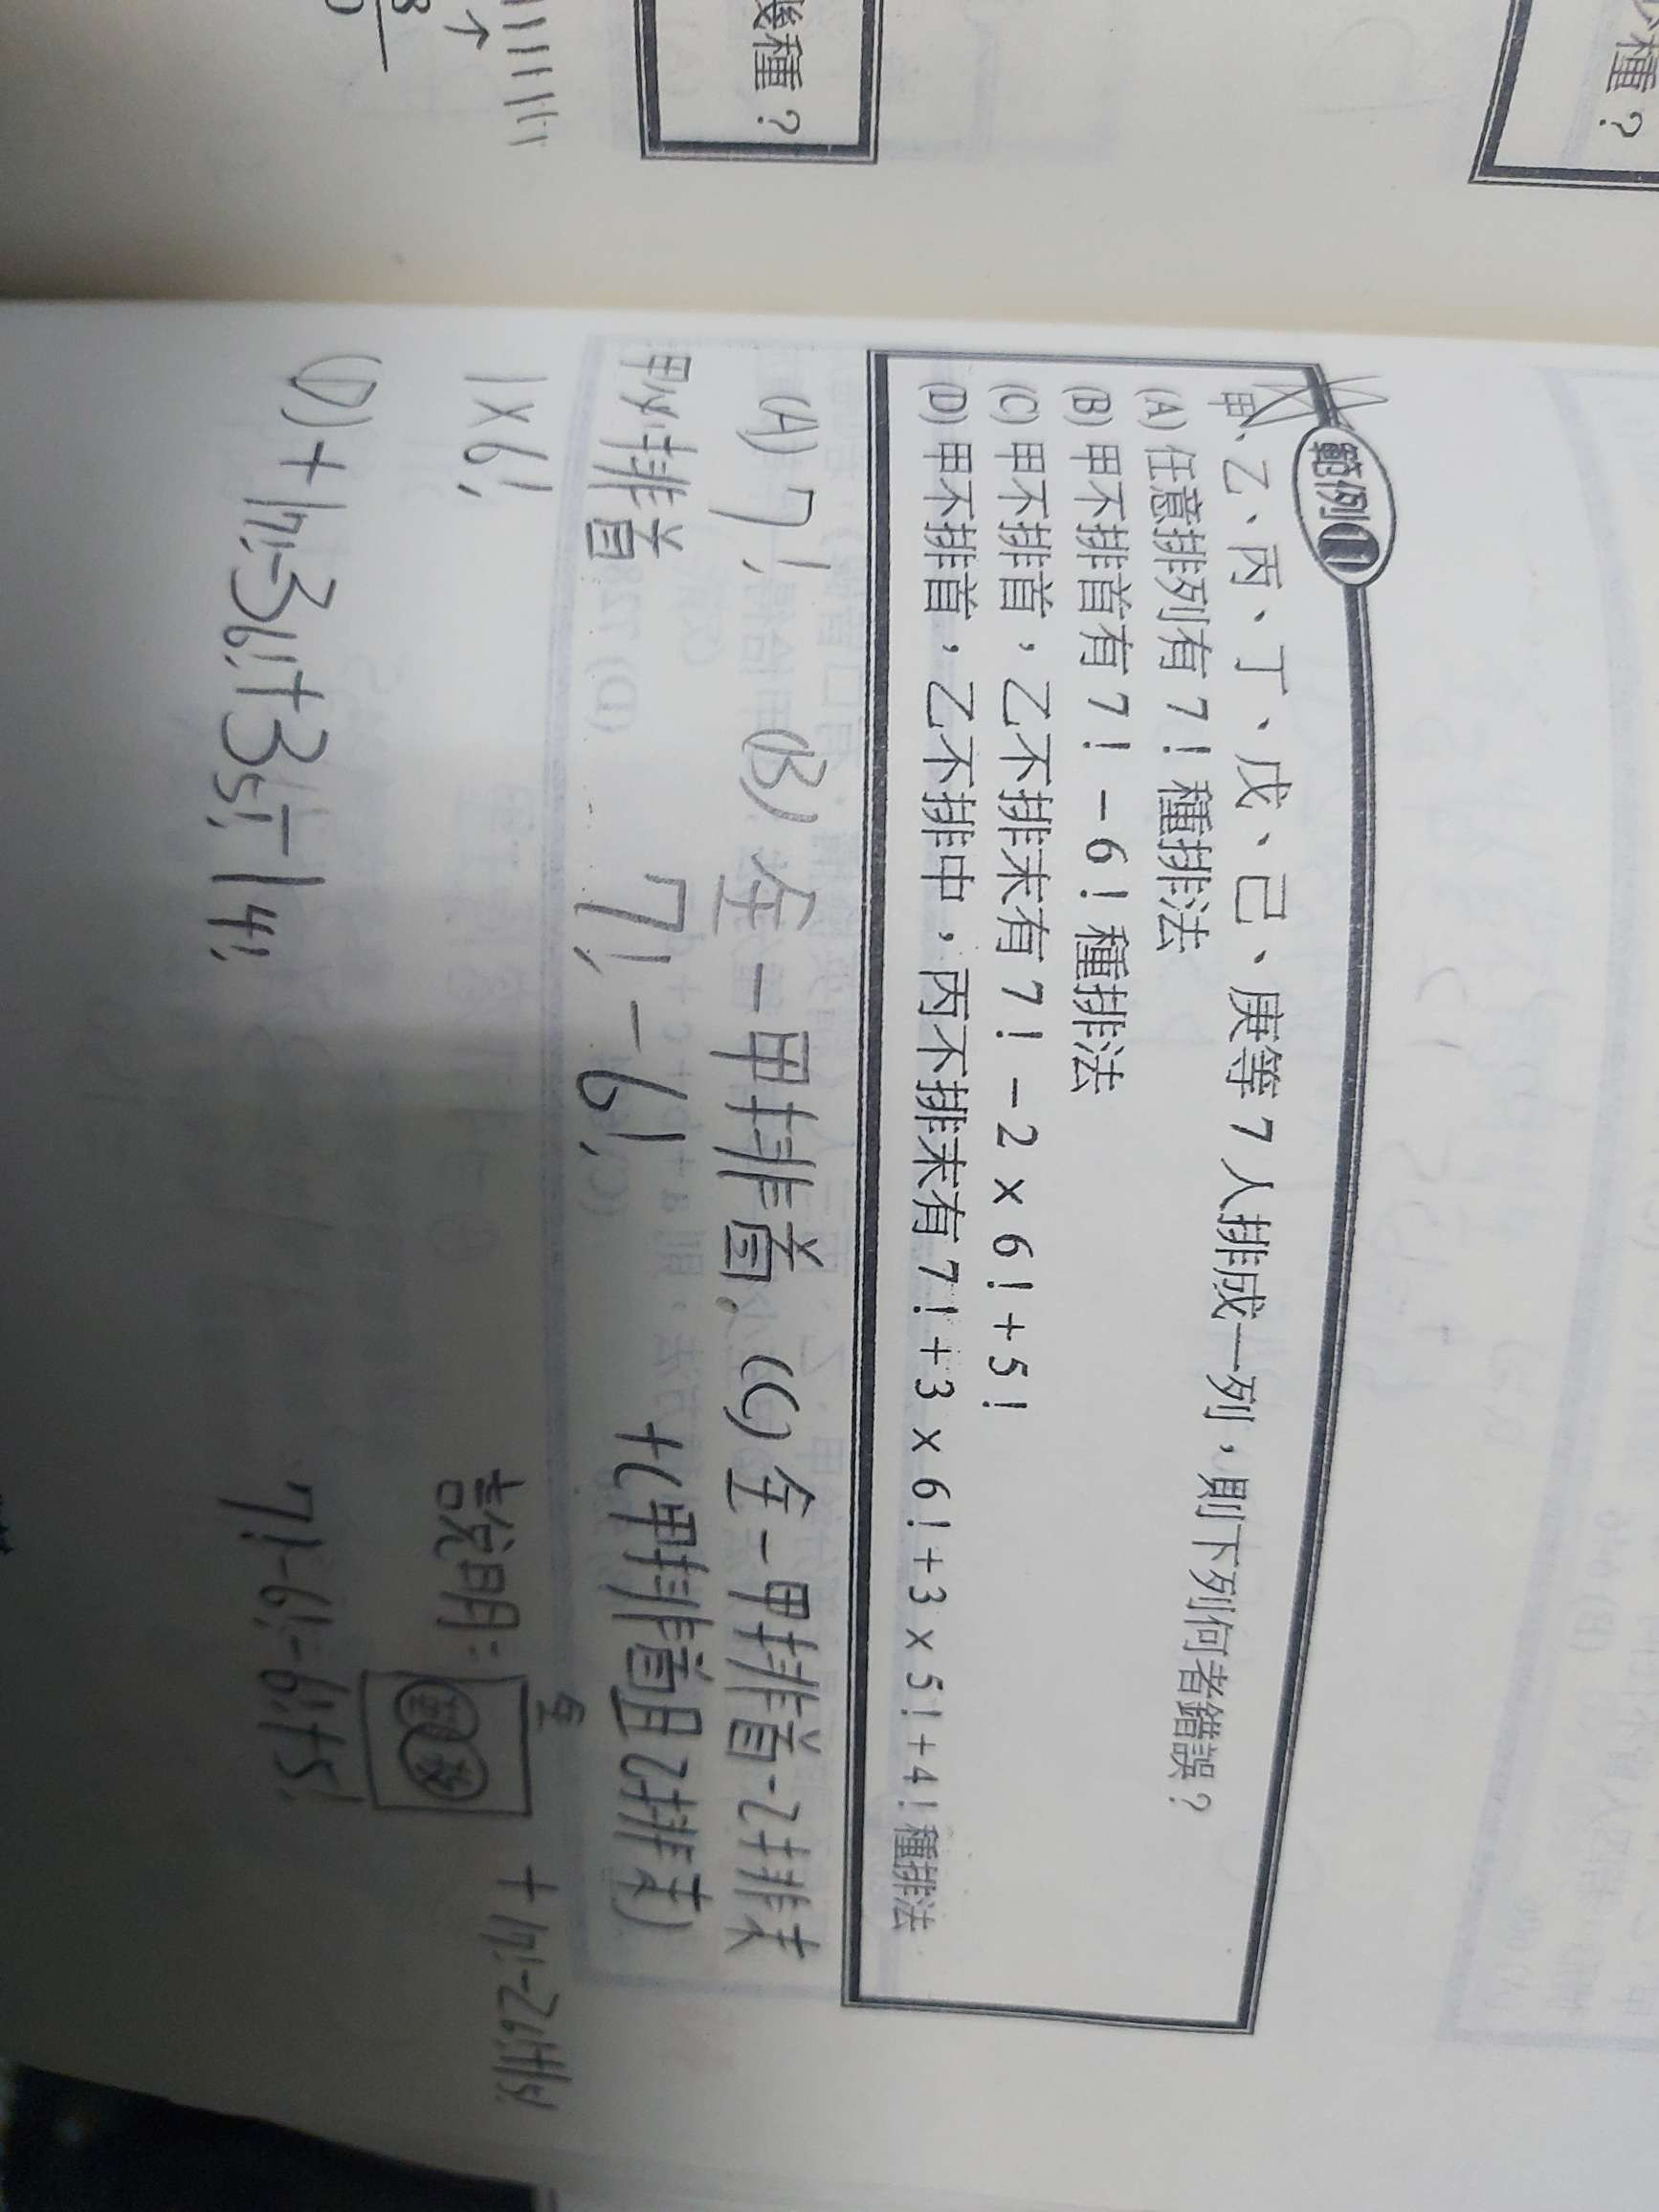 少種？
幾種？
範例11
甲、乙、丙、丁、戊、己、庚等 7 人排成一列，則下列何者錯誤？
(A) 任意排列有 7！種排法
(B) 甲不排首有 7！－6！種排法
(C) 甲不排首，乙不排末有 7！－2 × 6！＋5！
(D) 甲不排首，乙不排中，丙不排末有 7！＋3 × 6！＋3 × 5！＋4！種排法
(A) 7! (B) 全－甲排首 (C) 全－甲排首－乙排末
甲必排首 7!－6! ＋(甲排首且乙排末)
1×6! 說明: 全 首 末 ＋1 7!－2 6!＋1 5!
(D) ＋1 7!－3 6!＋3 5!－1 4! 7!－6!－6!＋5!